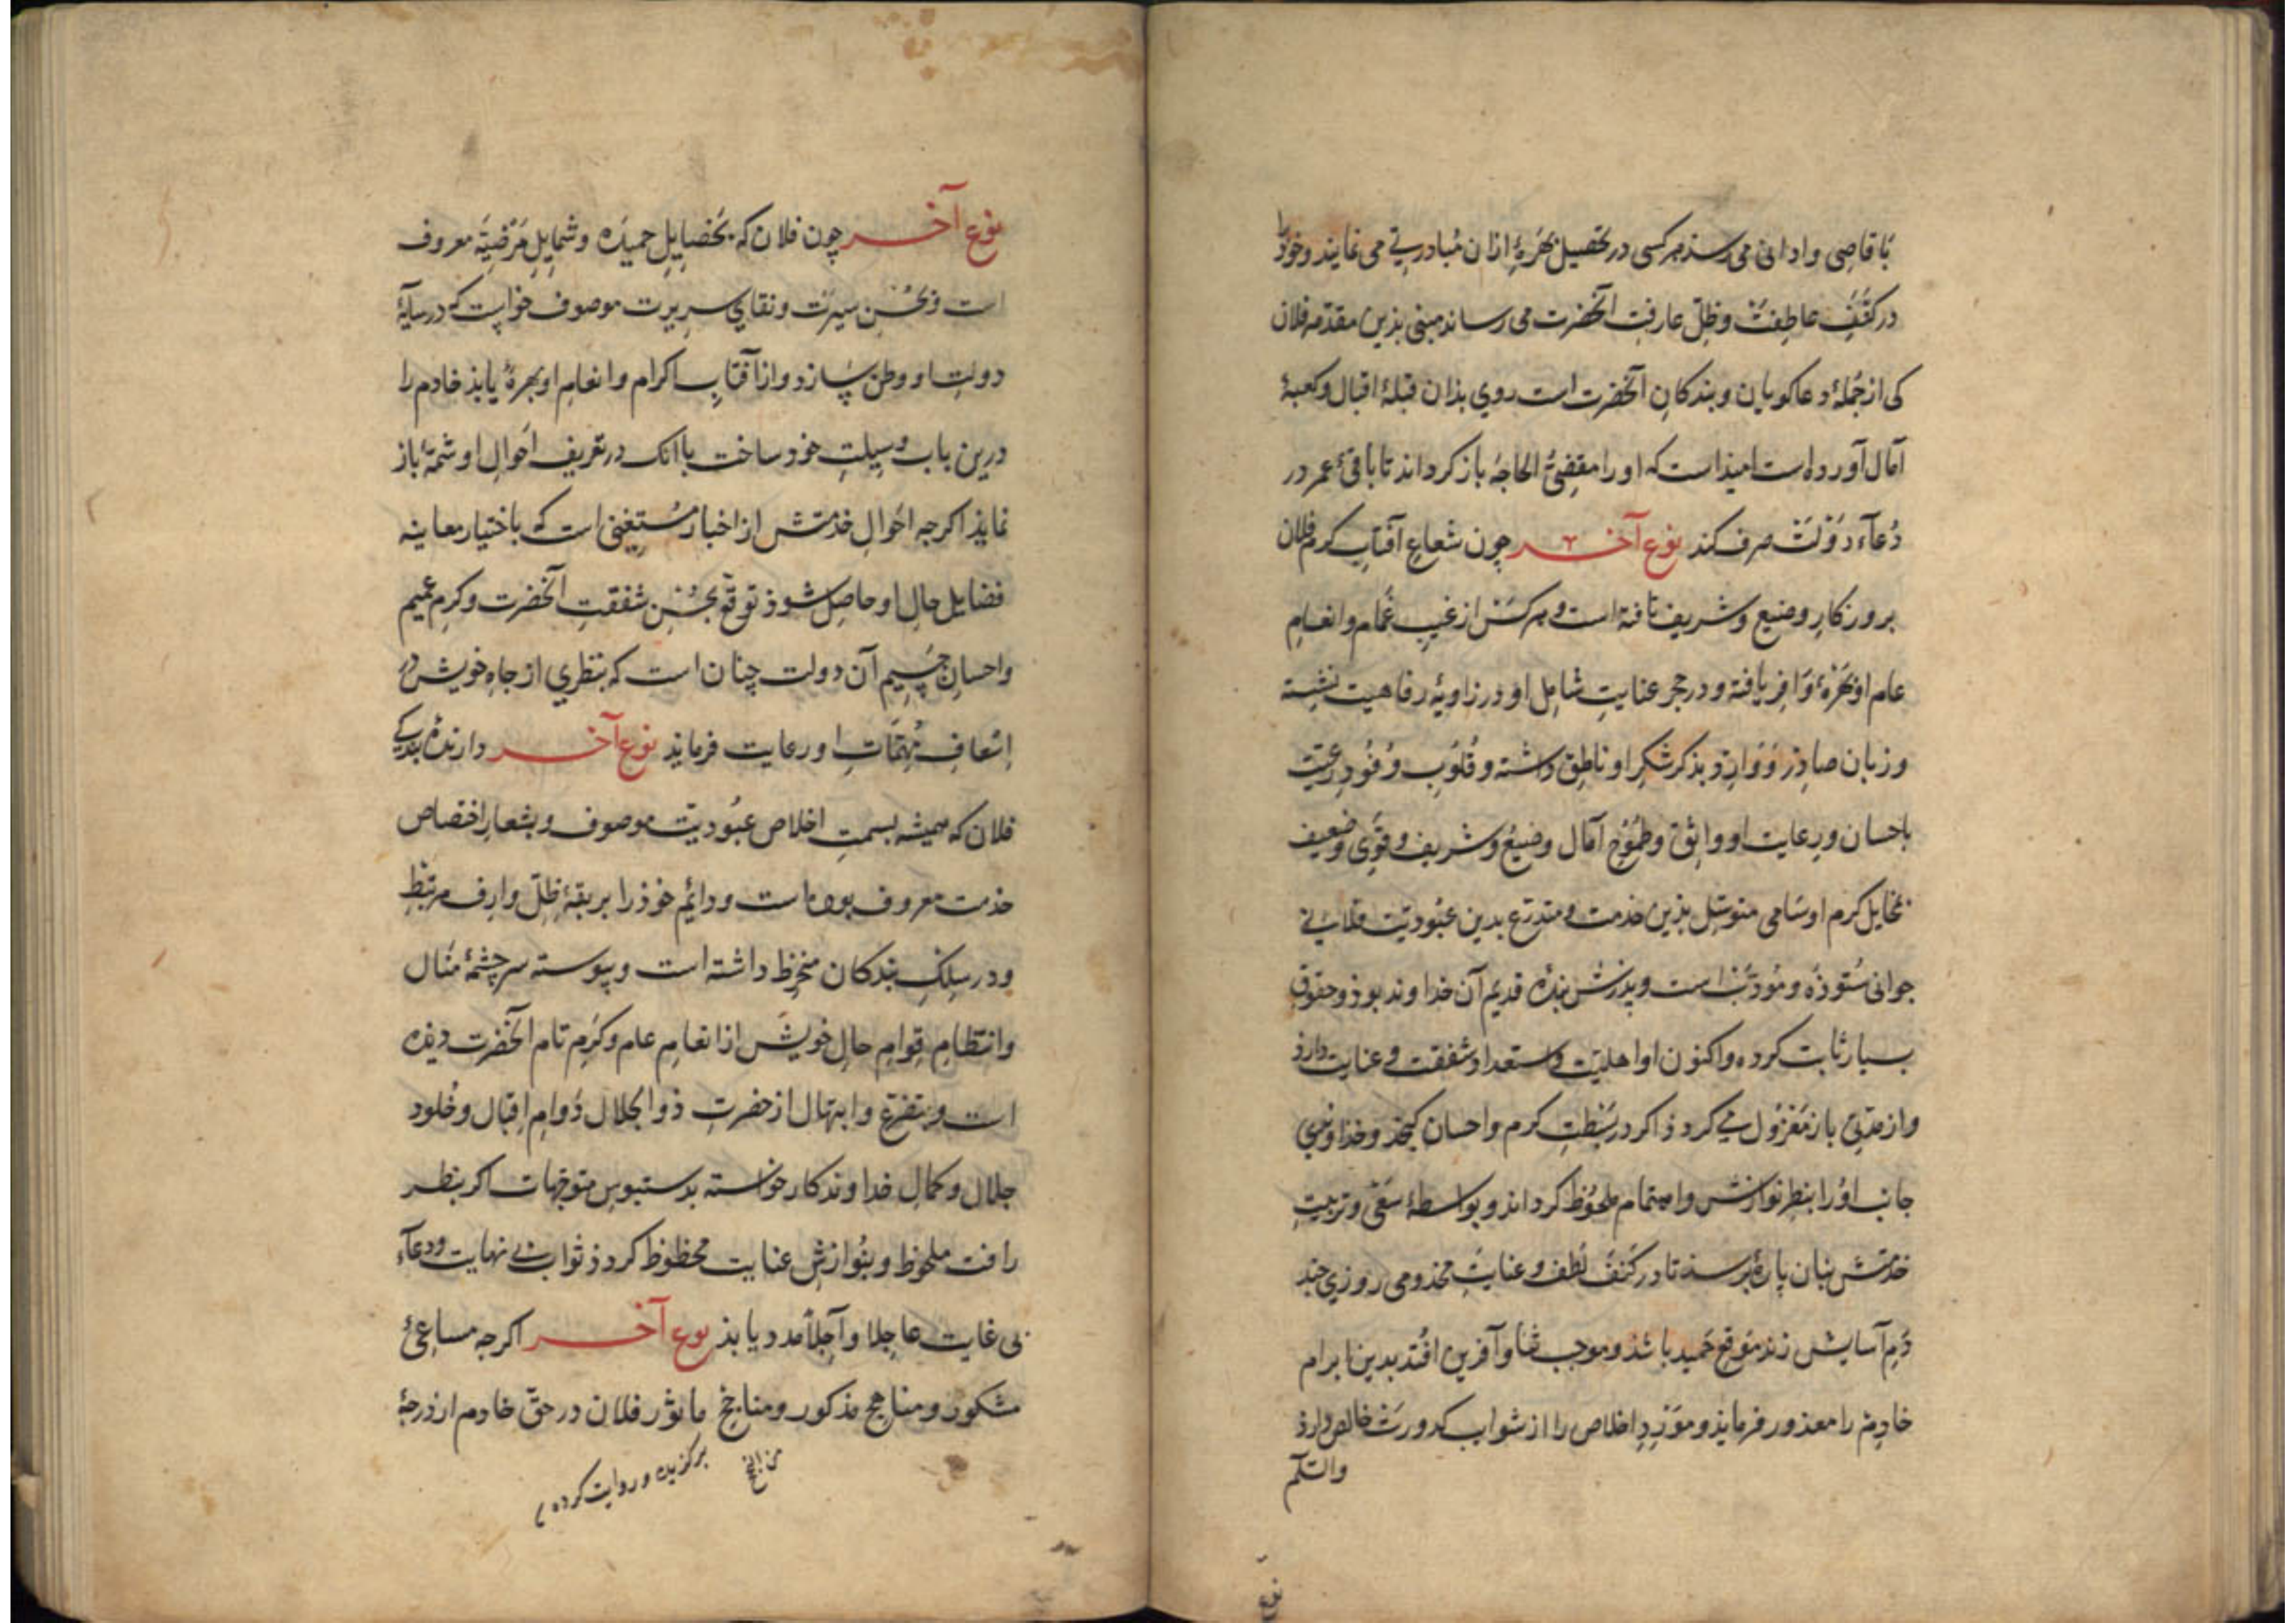 باقاصی و ادانی می رسد هر کسی در تحصیل بهرهٔ ازان مبادرتی می نماید و خود را
در کنف عاطفت و ظل عارفت آنحضرت می رساند مبنی بذین مقدمه فلان
کی از جملهٔ دعاکویان و بندکان آنحضرت است روی بذان قبلهٔ اقبال و کعبهٔ
آمال آورده است امیذ است که او را مقضی الحاجه باز کرداند تا باقیٔ عمر در
دعآء دولت صرف کند نوع آخر چون شعاع آفتاب کرم فلان
بروزکار وضیع و شریف تافته است و هر کس از غیب غمام و انعام
عام او بهرهٔ وافر یافته و در حجر عنایت شامل او در زاویهٔ رفاهیت نشسته
و زبان صادر و وارد بذکر شکر او ناطق داشته و قلوب وفود رعیت
باحسان و رعایت او واثق و طموح آمال وضیع و شریف و قوی و ضعیف
بمخایل کرم او سامی متوسل بذین خدمت و متدرع بدین عبودیت فلان
جوانی ستوده و مودب است و بذرش بندهٔ قدیم آن خداوند بوذ و حقوق
بسیار ثابت کرده و اکنون او اهلیت و استعداد شفقت و عنایت دارذ
و از مدتی باز معزول می کردذ اکر در کرم و احسان کنجذ و خداوندی
جانب او را بنظر نوازش و اهتمام ملحوظ کرداند و بواسطهٔ سعی و تربیت
خدمتش بنان پارهٔ برسد تا در کنف لطف و عنایت مخدومی روزی چند
دم آسایش زند موقع حمید باشذ و موجب ثنا و آفرین افتد بدین ابرام
خادم را معذور فرمایذ و مورد اخلاص را از شواب کدورت خالص دارذ
والسلم
نوع آخر چون فلان که بخصایل حمیده و شمایل مرضیه معروف
است و بحسن سیرت و نقای سریرت موصوف خواست که در سایهٔ
دولت او وطن سازد و از آفتاب اکرام و انعام او بهرهٔ یابذ خادم را
درین باب وسیلت خود ساخت باانک در تعریف احوال او شمهٔ باز
نمایذ اکرجه احوال خدمتش از اخبار مستغنی است که باختیار معاینه
فضایل حال او حاصل شوذ توقع بحسن شفقت آنحضرت و کرم عمیم
و احسان جسیم آن دولت چنان است که بنظری از جاه خویش در
اسعاف مهمات او رعایت فرمایذ نوع آخر دارندهٔ بندکی
فلان که همیشه بسمت اخلاص عبودیت موصوف و بشعار اختصاص
خدمت معروف بوده است و دایم خوذ را بربقهٔ ظل وارف مرتبط
و در سلک بندکان منخرط داشته است و پیوسته سرچشمهٔ منال
و انتظام قوام حال خویش از انعام عام و کرم تام آنحضرت دیده
است و بتضرع و ابتهال از حضرت ذوالجلال دوام اقبال و خلود
جلال و کمال خداوندکار خواسته بدستبوس متوجهات اکر بنظر
رافت ملحوظ و بنوازش عنایت محظوظ کردذ ثواب بی نهایت و دعآء
بی غایت عاجلا و آجلا مدد یابذ نوع آخر اکرجه مساعیٔ
مشکور و مناهج مذکور و مناجح ماثور فلان در حق خادم از درجهٔ
برکزیده و روایت کرده